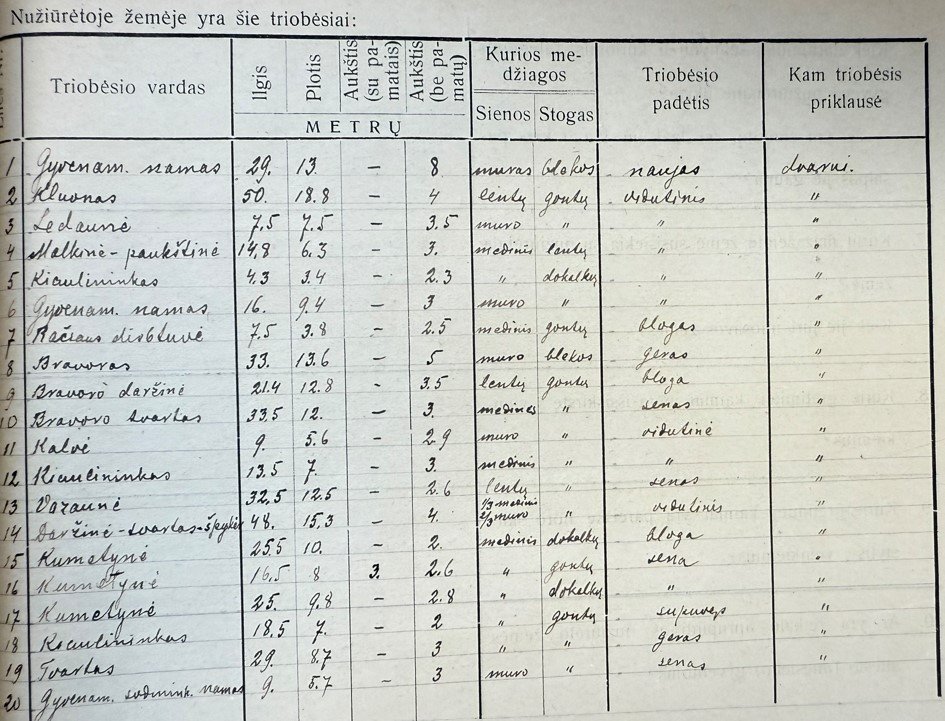 Nužiūrėtoje žemėje yra šie triobėsiai:
Triobėsio vardas | Ilgis | Plotis | Aukštis (su pamatais) | Aukštis (be pamatų) | Kurios medžiagos | Triobėsio padėtis | Kam triobėsis priklausė
METRŲ | Sienos | Stogas
1 Gyvenam. namas 29. 13. – 8 muras blekos naujas dvarui.
2 Kluonas 50. 18.8 – 4 lentų gontų vidutinis "
3 Ledaunė 7.5 7.5 – 3.5 muro " " "
4 Malkinė-paukštinė 14,8 6.3 – 3. medinis lentų " "
5 Kiaulininkas 4.3 3.4 – 2.3 " dokalkų " "
6 Gyvenam. namas 16. 9.4 – 3 muro " " "
7 7.5 3.8 – 2.5 medinis gontų blogas "
8 Bravoras 33. 13.6 – 5 muro blekos geras "
9 Bravoro daržinė 21.4 12.8 – 3.5 lentų gontų bloga "
10 Bravoro tvartas 33,5 12. – 3. medinės " senas "
11 Kalvė 9. 5.6 – 2.9 muro " vidutinė "
12 Kiaulininkas 13.5 7. – 3. medinis " " "
13 32.5 12.5 – 2.6 lentų " senas "
14 Daržinė-tvartas- 48. 15.3 – 4. 1/3 medinis 2/3 muro " vidutinis "
15 Kumetynė 25.5 10. – 2. medinis dokalkų bloga "
16 Kumetynė 16,5 8 3. 2.6 " gontų sena "
17 Kumetynė 25. 9.8 – 2.8 " dokalkų " "
18 Kiaulininkas 18.5 7. – 2 " gontų supuvęs "
19 Tvartas 29. 8.7 – 3 " " geras "
20 Gyvenam. sodinink. namas 9. 5.7 – 3 muro " senas "